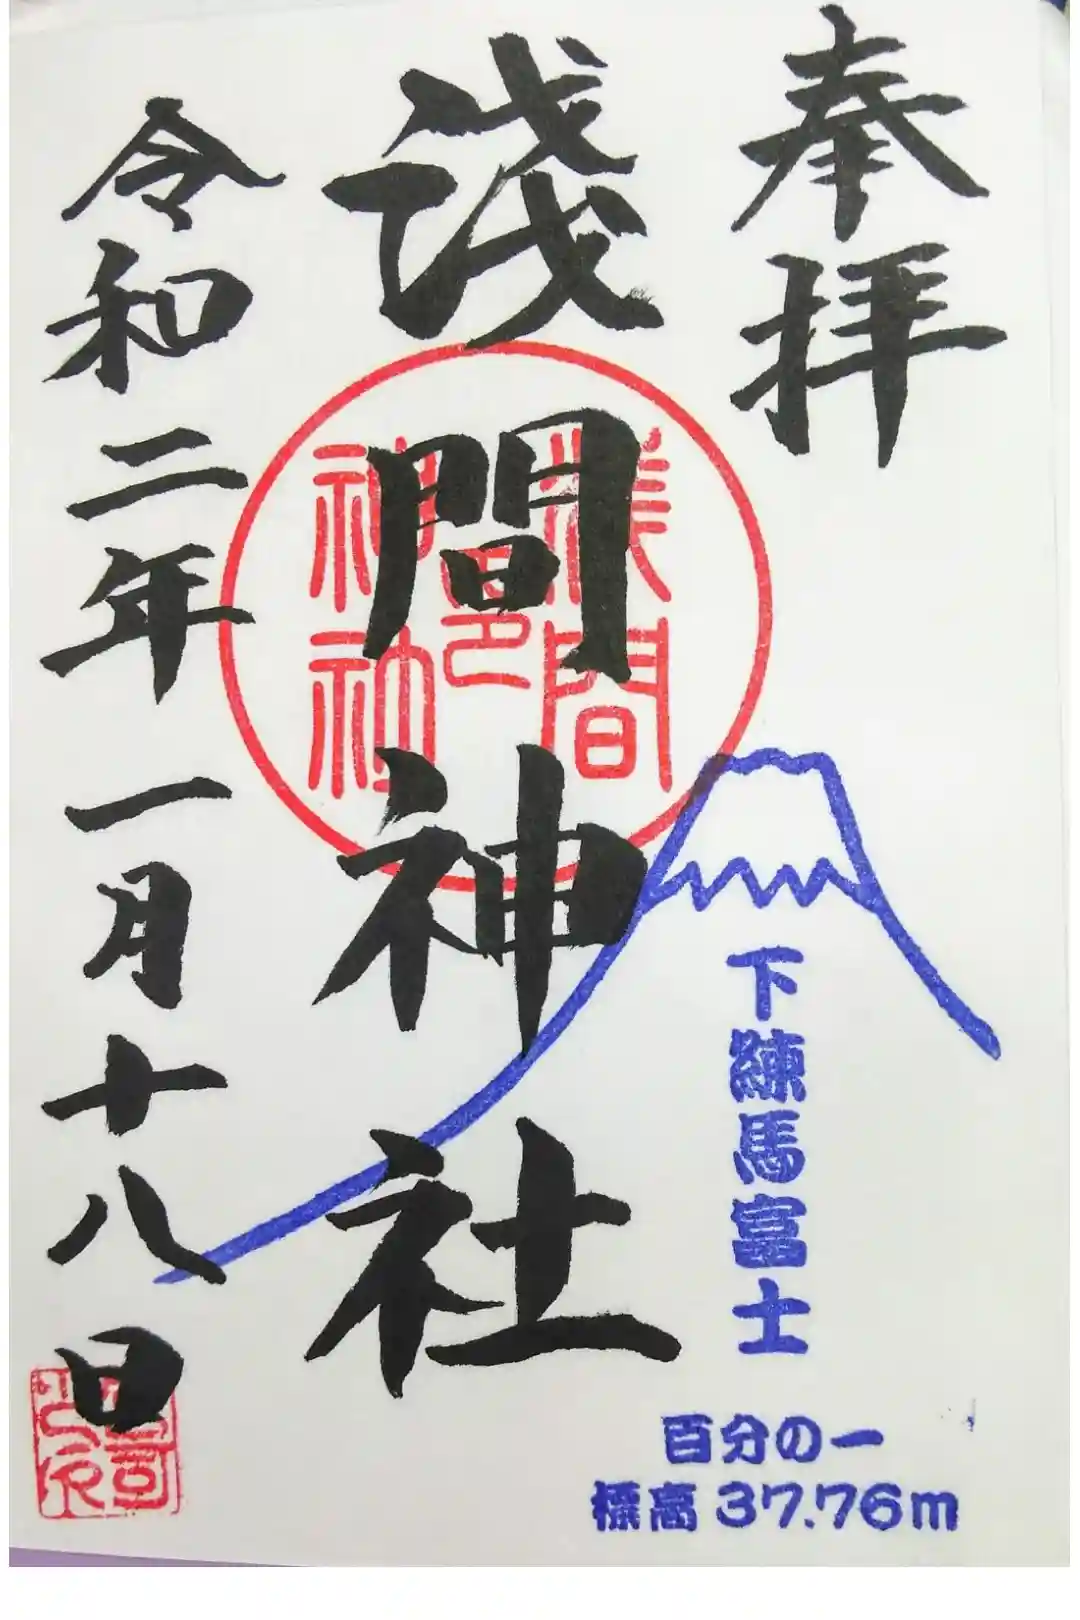 奉拝
浅間神社
浅間
神社
之印
令和二年一月十八日
下練馬富士
百分の一
標高 37.76m